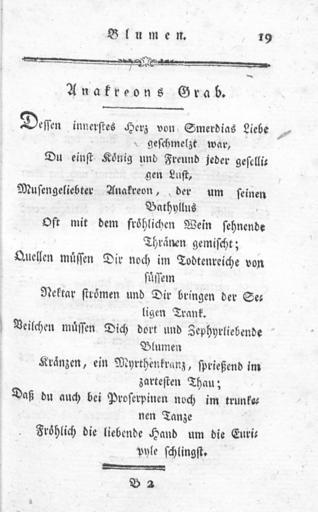 Blumen. 19
Anakreons Grab.
Dessen innerstes Herz von Smerdias Liebe
geschmelzt war,
Du einst König und Freund jeder geselli-
gen Lust,
Musengeliebter Anakreon, der um seinen
Bathyllus
Oft mit dem fröhlichen Wein sehnende
Thränen gemischt;
Quellen müssen Dir noch im Todtenreiche von
süssem
Nektar strömen und Dir bringen der Se-
ligen Trank.
Veilchen müssen Dich dort und Zephyrliebende
Blumen
Kränzen, ein Myrthenkranz, sprießend im
zartesten Thau;
Daß du auch bei Proserpinen noch im trunke-
nen Tanze
Fröhlich die liebende Hand um die Euri-
pyle schlingst.
B 2